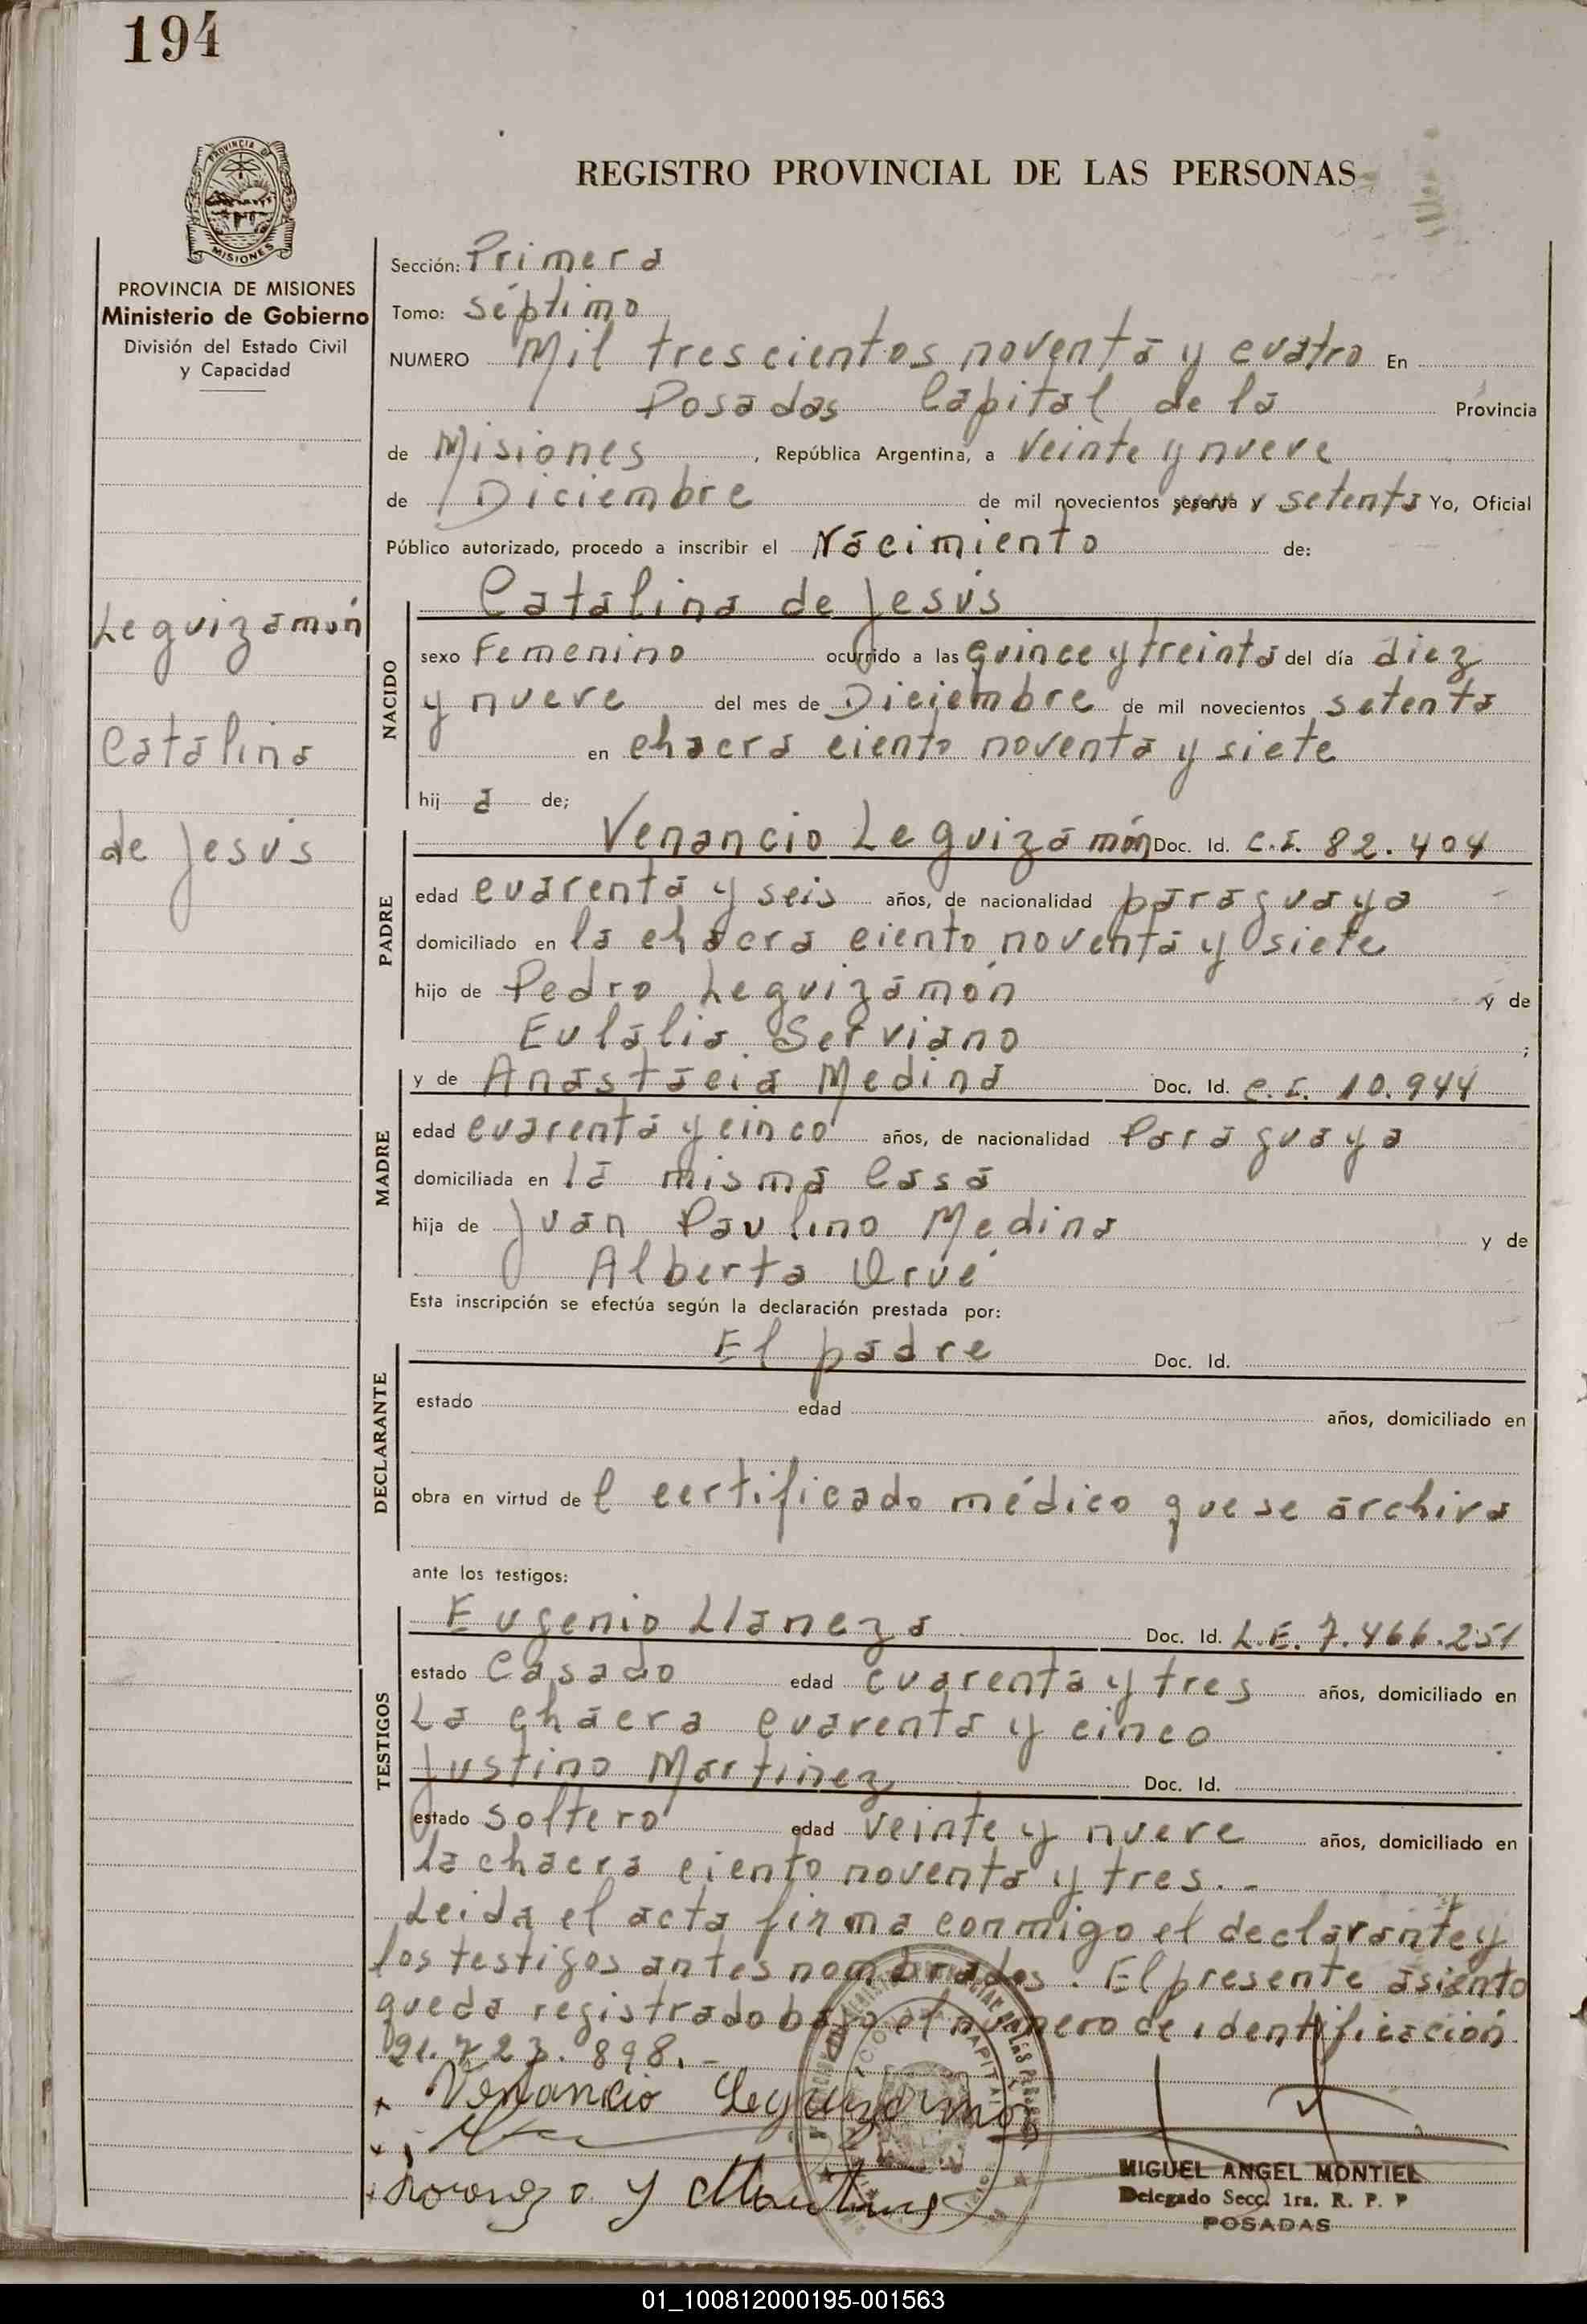 194
REGISTRO PROVINCIAL DE LAS PERSONAS
PROVINCIA DE MISIONES
Ministerio de Gobierno
División del Estado Civil
y Capacidad
Leguizamón
Catalina
de Jesús
Sección: Primera
Tomo: séptimo
NUMERO Mil trescientos noventa y cuatro En
Posadas Capital de la Provincia
de Misiones, República Argentina, a veinte y nueve
de Diciembre de mil novecientos sesenta y setenta Yo, Oficial
Público autorizado, procedo a inscribir el Nacimiento de:
NACIDO
Catalina de Jesús
sexo Femenino ocurrido a las quince y treinta del día diez
y nueve del mes de Diciembre de mil novecientos setenta
en chacra ciento noventa y siete
hij a de;
PADRE
Venancio Leguizamón Doc. Id. C.I. 82.404
edad cuarenta y seis años, de nacionalidad paraguaya
domiciliado en la chacra ciento noventa y siete
hijo de Pedro Leguizamón y de
Eulalia Serviano ;
MADRE
y de Anastacia Medina Doc. Id. C.I. 10.944
edad cuarenta y cinco años, de nacionalidad Paraguaya
domiciliada en la misma casa
hija de Juan Paulino Medina y de
Alberta Orué
Esta inscripción se efectúa según la declaración prestada por:
DECLARANTE
El padre Doc. Id.
estado edad años, domiciliado en
obra en virtud de l certificado médico que se archiva
ante los testigos:
TESTIGOS
Eugenio Llaneza Doc. Id. L.E. 7.466.251
estado Casado edad cuarenta y tres años, domiciliado en
La chacra cuarenta y cinco
Justino Martinez Doc. Id.
estado soltero edad veinte y nueve años, domiciliado en
la chacra ciento noventa y tres.-
Leida el acta firma conmigo el declarante y
los testigos antes nombrados. El presente asiento
queda registrado bajo el número de identificación
21.723.898.-
Venancio Leguizamón
MIGUEL ANGEL MONTIEL
Delegado Secc. 1ra. R. P. P
POSADAS
01_100812000195-001563